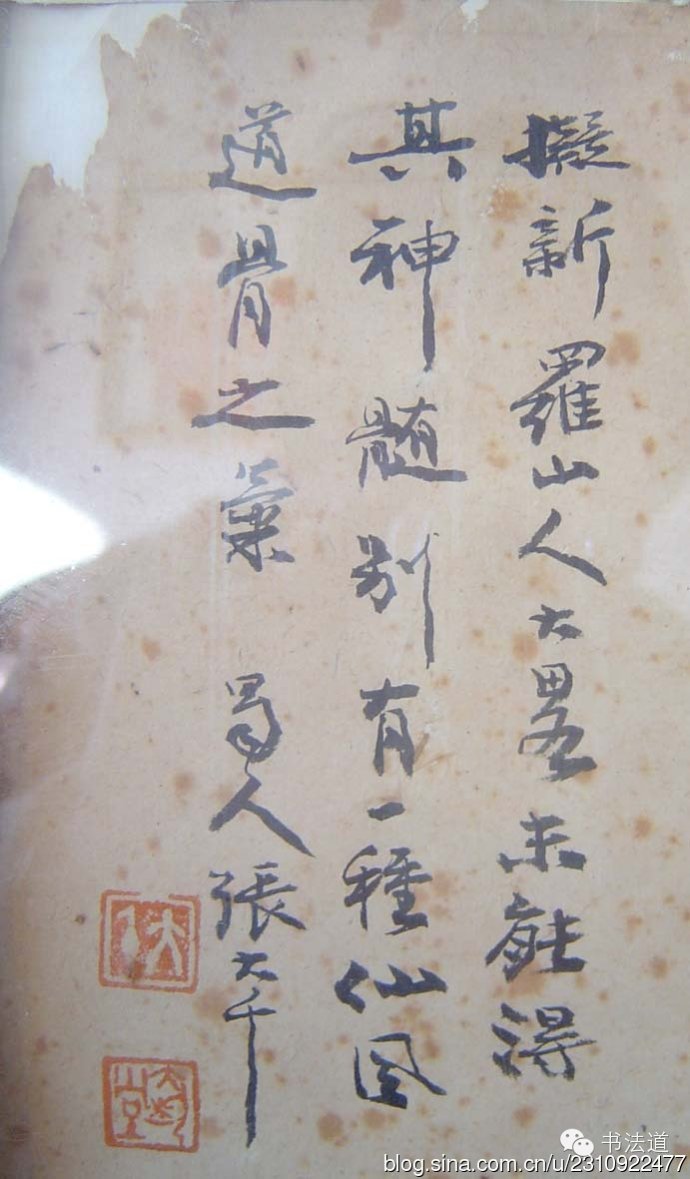 擬新羅山人大畧未能得
其神髓別有一種仙風
道骨之氣　蜀人張大千
大千
大風堂
书法道
blog.sina.com.cn/u/2310922477